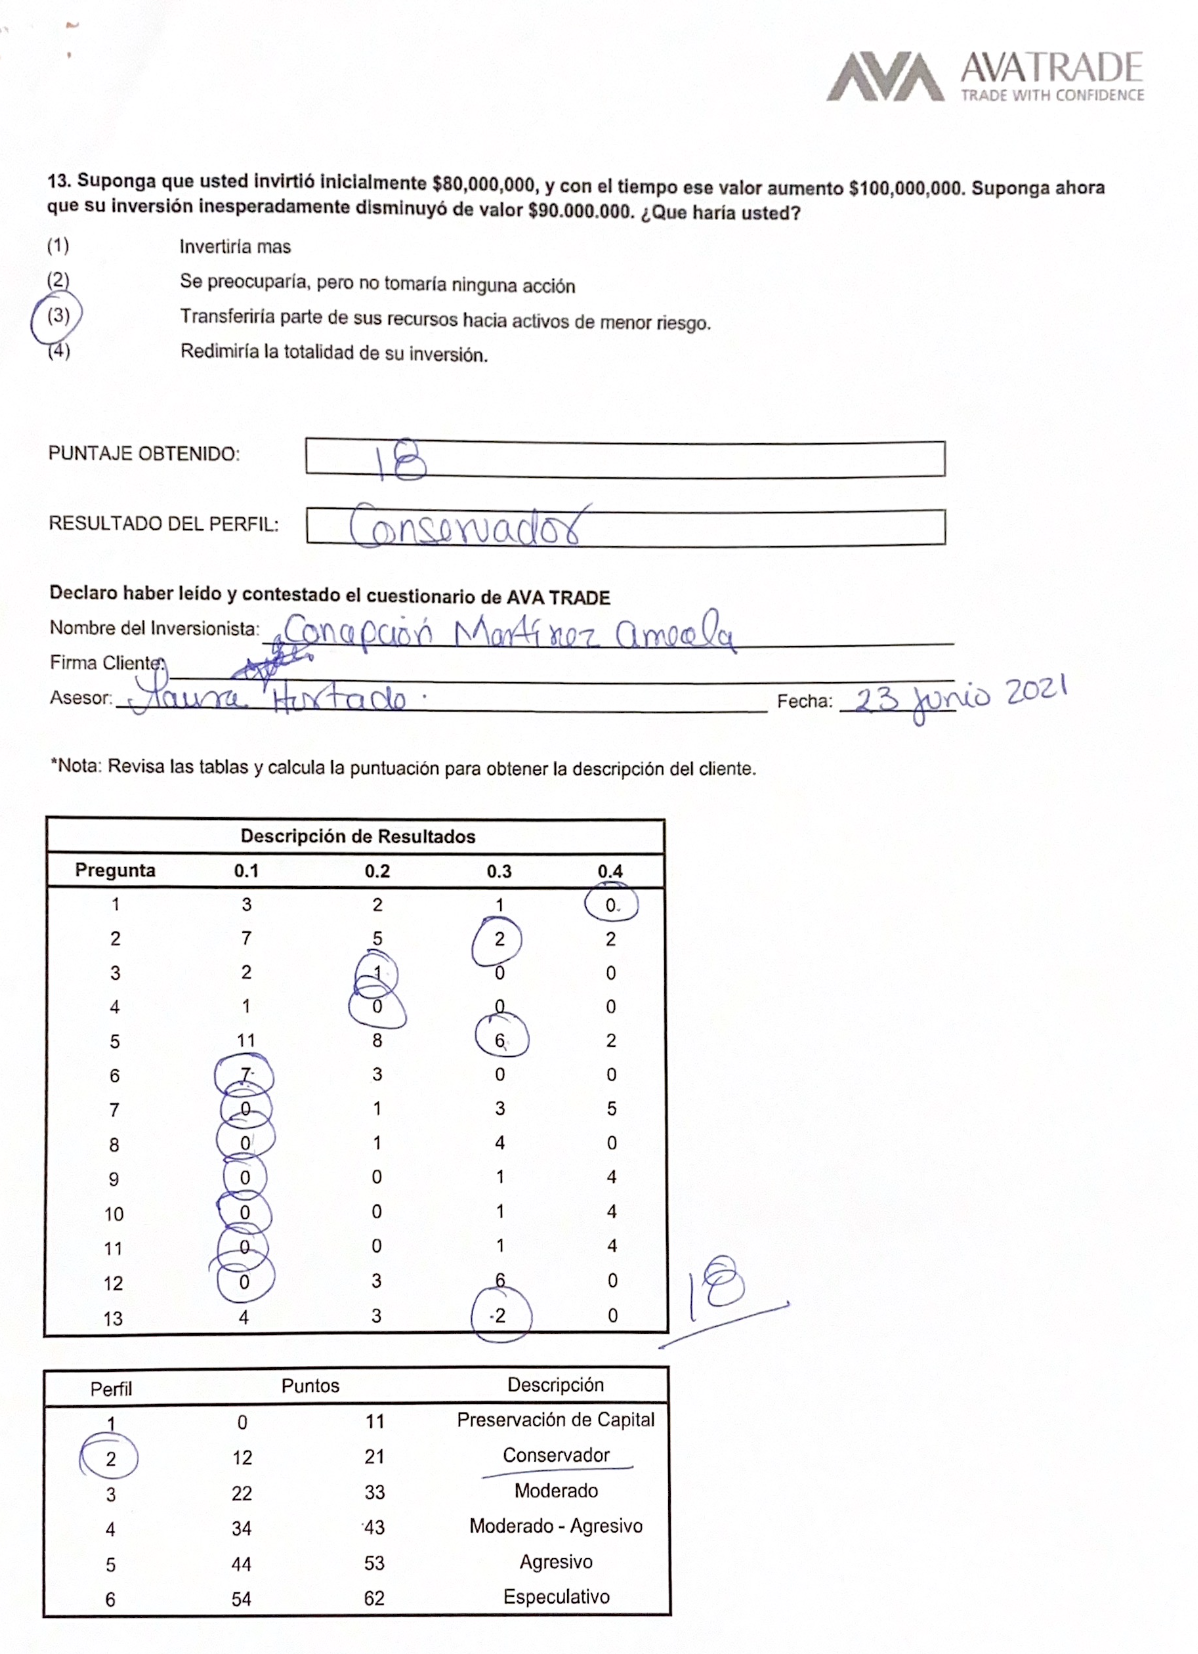 AVA AVATRADE
TRADE WITH CONFIDENCE
13. Suponga que usted invirtió inicialmente $80,000,000, y con el tiempo ese valor aumento $100,000,000. Suponga ahora
que su inversión inesperadamente disminuyó de valor $90.000.000. ¿Que haría usted?
(1) Invertiría mas
(2) Se preocuparía, pero no tomaría ninguna acción
(3) Transferiría parte de sus recursos hacia activos de menor riesgo.
(4) Redimiría la totalidad de su inversión.
PUNTAJE OBTENIDO: 18
RESULTADO DEL PERFIL: Conservador
Declaro haber leído y contestado el cuestionario de AVA TRADE
Nombre del Inversionista: Concepción Martínez
Firma Cliente:
Asesor: Laura Hurtado. Fecha: 23 junio 2021
*Nota: Revisa las tablas y calcula la puntuación para obtener la descripción del cliente.
Descripción de Resultados
Pregunta 0.1 0.2 0.3 0.4
1 3 2 1 0
2 7 5 2 2
3 2 1 0 0
4 1 0 0 0
5 11 8 6 2
6 7 3 0 0
7 0 1 3 5
8 0 1 4 0
9 0 0 1 4
10 0 0 1 4
11 0 0 1 4
12 0 3 6 0
13 4 3 2 0
18
Perfil Puntos Descripción
1 0 11 Preservación de Capital
2 12 21 Conservador
3 22 33 Moderado
4 34 43 Moderado - Agresivo
5 44 53 Agresivo
6 54 62 Especulativo